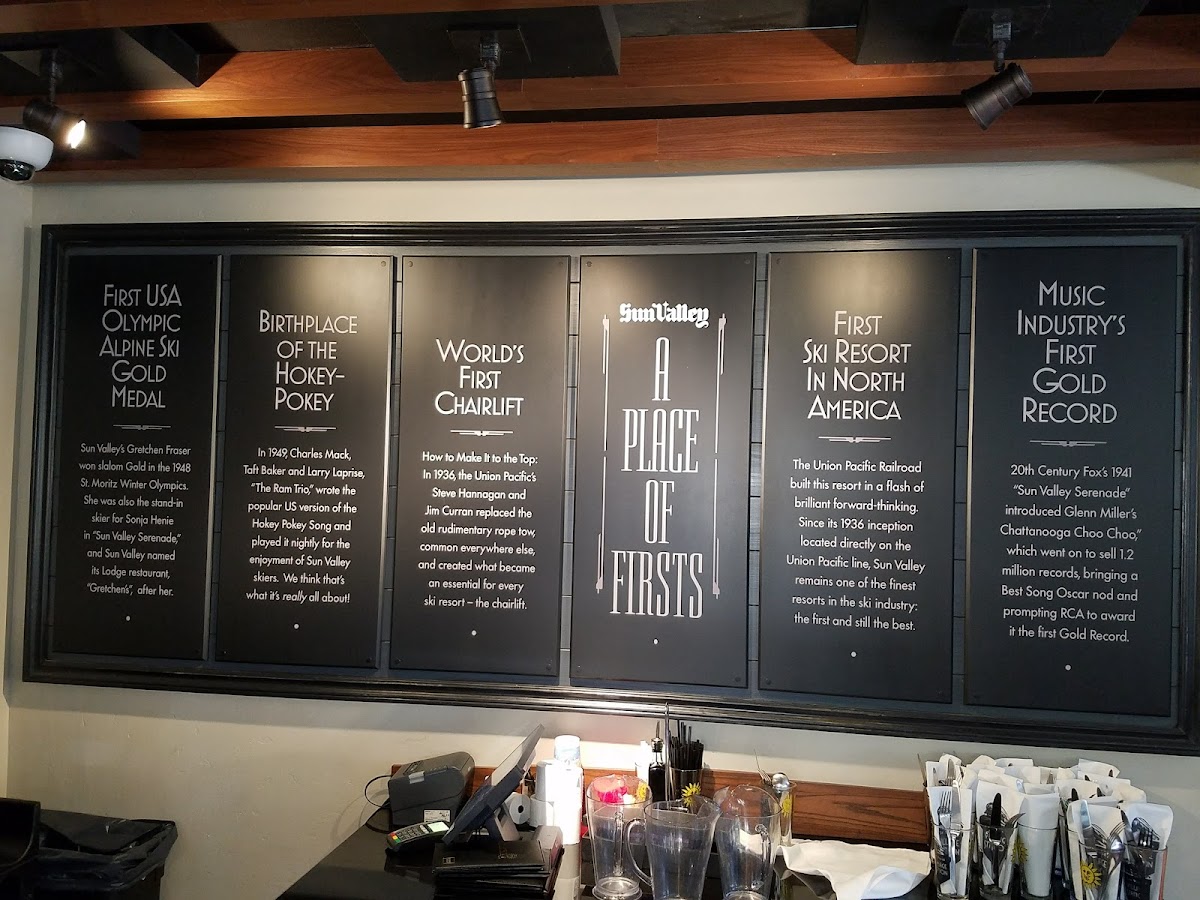 First USA
Olympic
Alpine Ski
Gold
Medal
Sun Valley's Gretchen Fraser
won slalom Gold in the 1948
St. Moritz Winter Olympics.
She was also the stand-in
skier for Sonja Henie
in "Sun Valley Serenade,"
and Sun Valley named
its Lodge restaurant,
"Gretchen's", after her.
Birthplace
of the
Hokey-
Pokey
In 1949, Charles Mack,
Taft Baker and Larry Laprise,
"The Ram Trio," wrote the
popular US version of the
Hokey Pokey Song and
played it nightly for the
enjoyment of Sun Valley
skiers. We think that's
what it's really all about!
World's
First
Chairlift
How to Make It to the Top:
In 1936, the Union Pacific's
Steve Hannagan and
Jim Curran replaced the
old rudimentary rope tow,
common everywhere else,
and created what became
an essential for every
ski resort – the chairlift.
Sun Valley
A
PLACE
OF
FIRSTS
First
Ski Resort
In North
America
The Union Pacific Railroad
built this resort in a flash of
brilliant forward-thinking.
Since its 1936 inception
located directly on the
Union Pacific line, Sun Valley
remains one of the finest
resorts in the ski industry:
the first and still the best.
Music
Industry's
First
Gold
Record
20th Century Fox's 1941
"Sun Valley Serenade"
introduced Glenn Miller's
Chattanooga Choo Choo,"
which went on to sell 1.2
million records, bringing a
Best Song Oscar nod and
prompting RCA to award
it the first Gold Record.